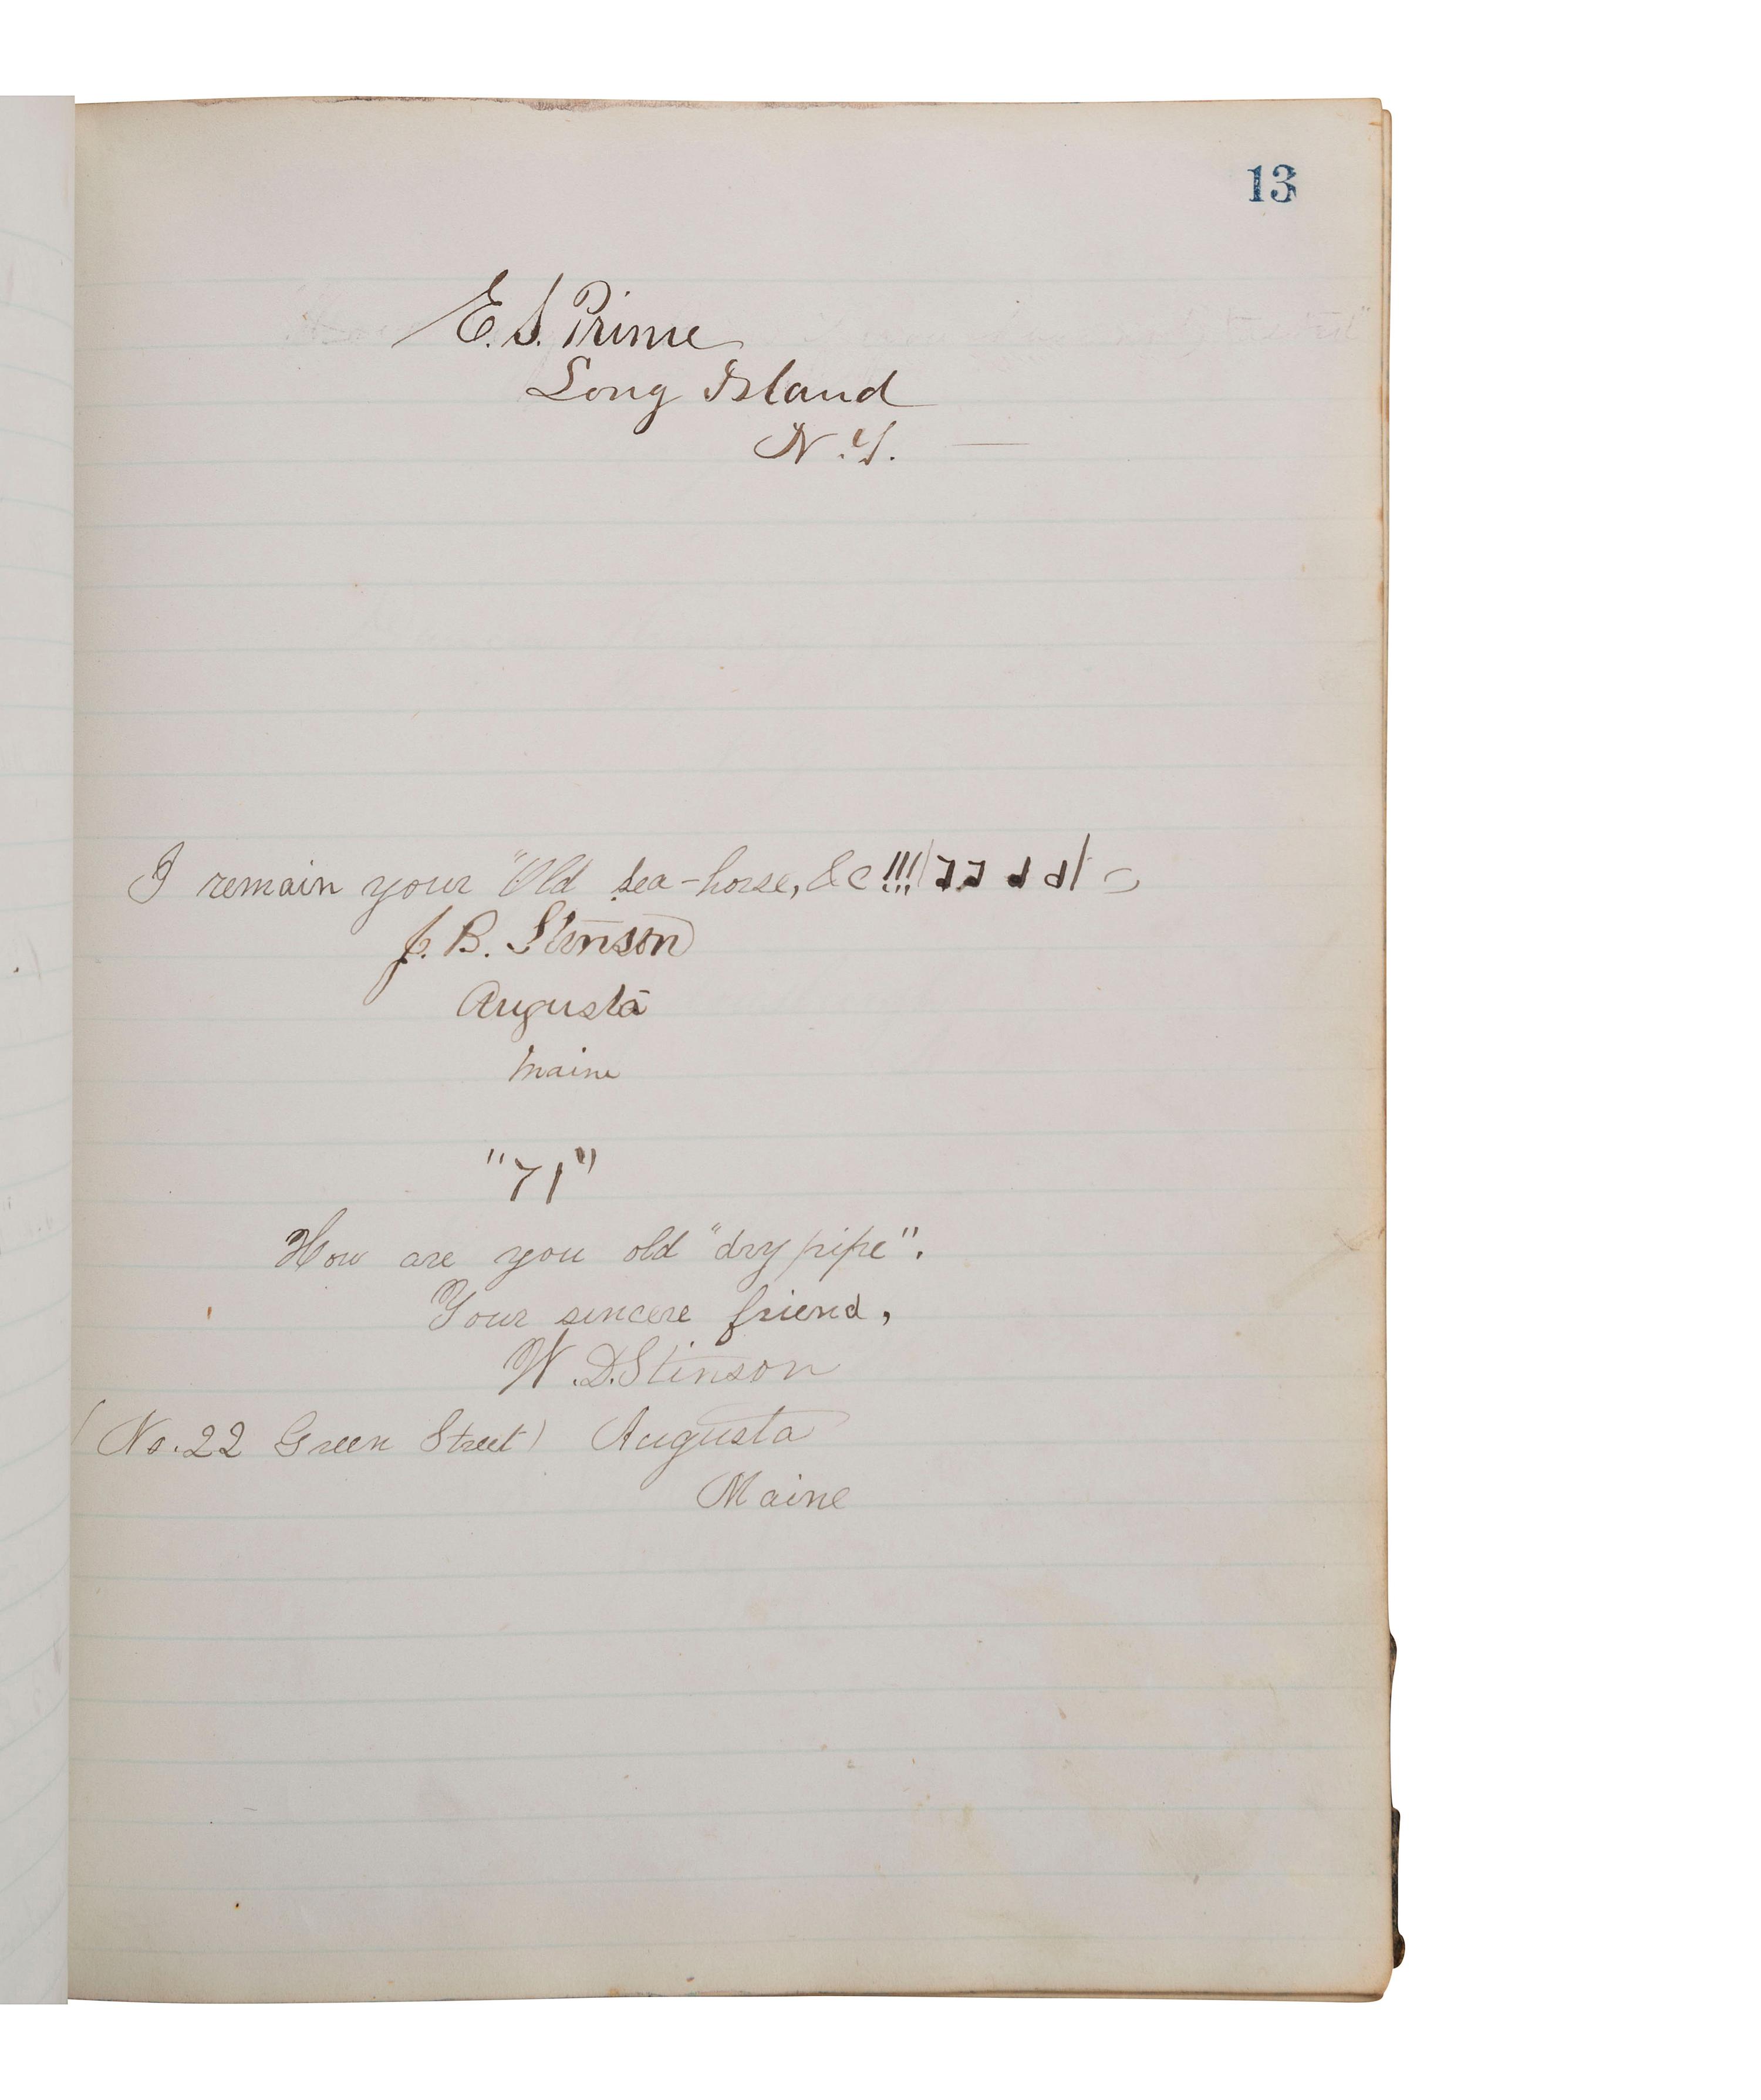 13
E. S. Prime
Long Island
N. Y.
I remain your "Old sea-horse, &c !!!
J. B. Stinson
Augusta
Maine
"71"
How are you old "dry pipe".
Your sincere friend,
W. D. Stinson
(No. 22 Green Street) Augusta
Maine